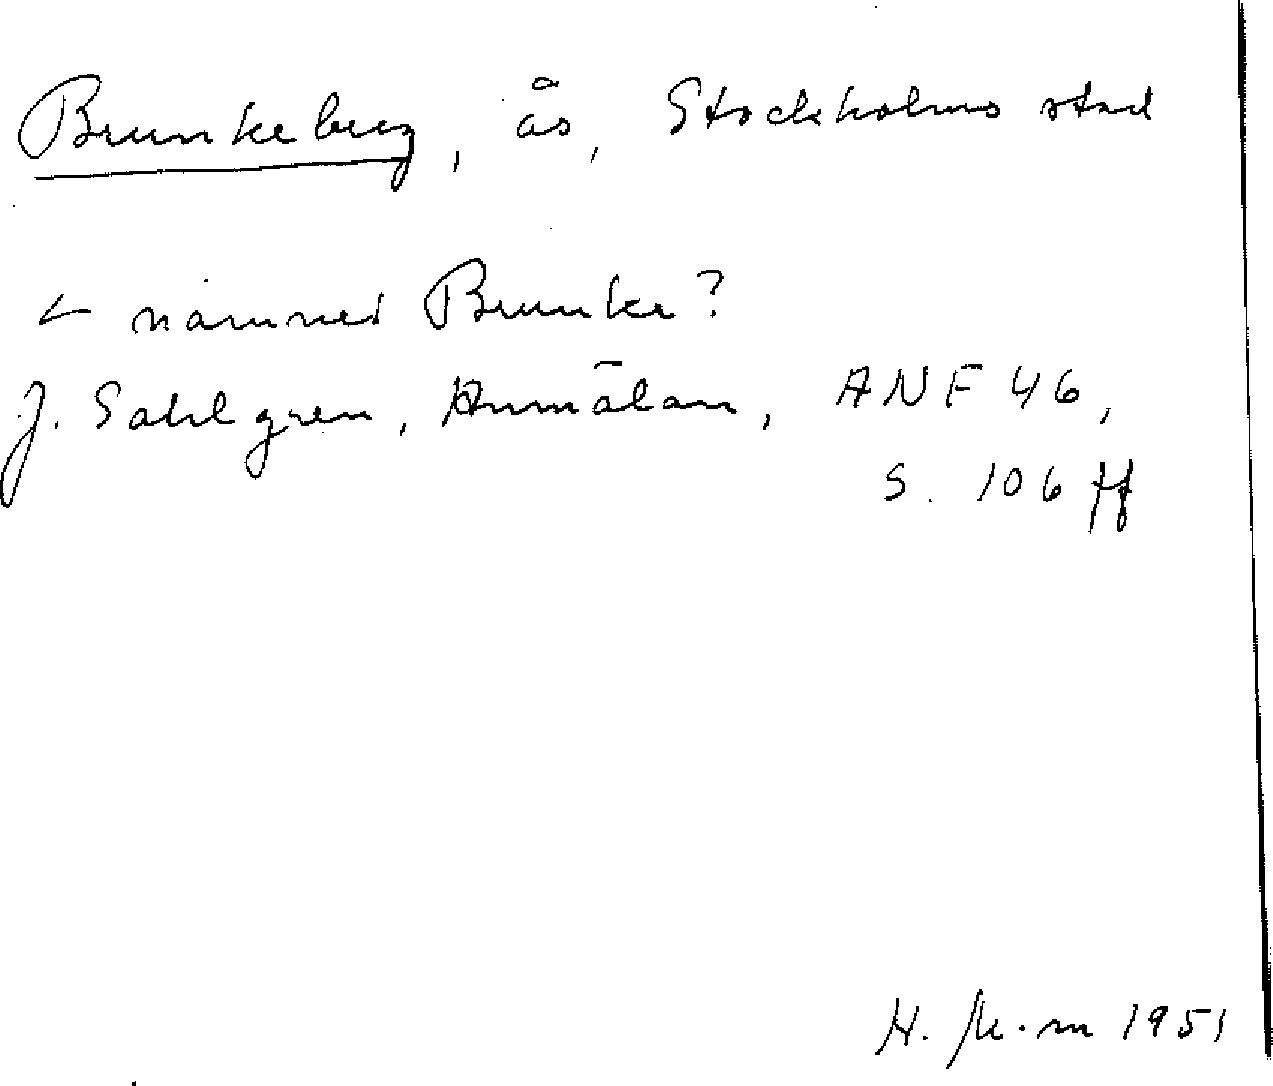 Brunkeberg, ås, Stockholms stad
< namnet Brunke?
J. Sahlgren, Anmälan, ANF 46,
S. 106 ff
H. 1951